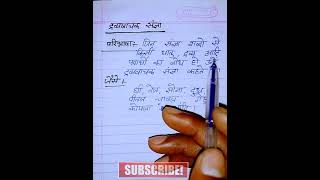 द्रव्यवाचक संज्ञा
परिभाषा:- जिन संज्ञा शब्दों से
किसी धातु, द्रव्य आदि
पदार्थों का बोध हो
द्रव्यवाचक संज्ञा कहते
जैसे:-
घी, तेल, सोना, दूध,
पीतल, चावल,
कोयला
SUBSCRIBE!